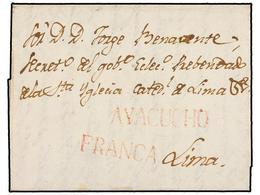 Sor. D. D. Jorge Benavente,
Secreto. del gobo. Ecleco. Rebendado
de la Sta Yglecia Cated. d Lima &.
AYACUCHO
FRANCA Lima.